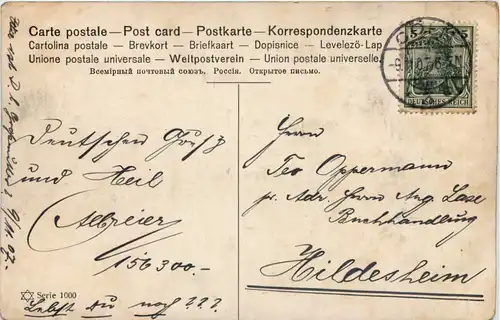 Carte postale – Post card – Postkarte – Korrespondenzkarte
Cartolina postale – Brevkort – Briefkaart – Dopisnice – Levelező-Lap
Unione postale universale – Weltpostverein – Union postale universelle
Всемірный почтовый союзъ. Россія. Открытое письмо.
DEUTSCHES REICH
Deutschen Gruß
und Heil
156300.-
Serie 1000
Lebst du noch ???
Herrn
Teo Oppermann
pr. Adr. Herrn Aug. Lax
Buchhandlung
Hildesheim
9/11. 07.